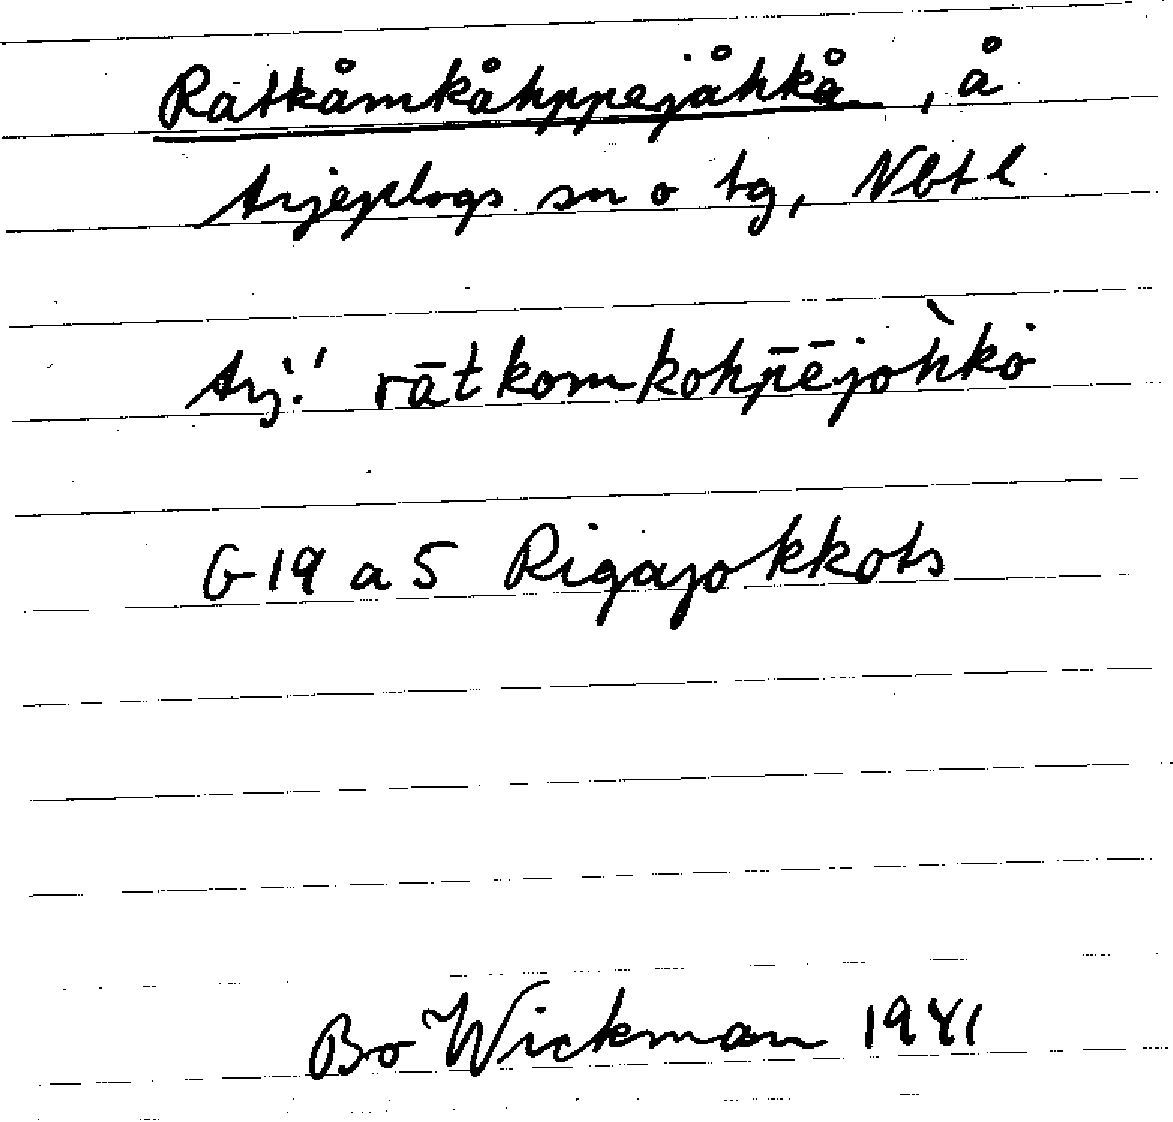 Ratkåmkåhppejåhkå, å
Arjeplogs sn o tg, Nbtl
Arj.! rātkomkohp̄ējoh̀kȯ
G 19 a 5 Rigajokkots
Bo Wickman 1941